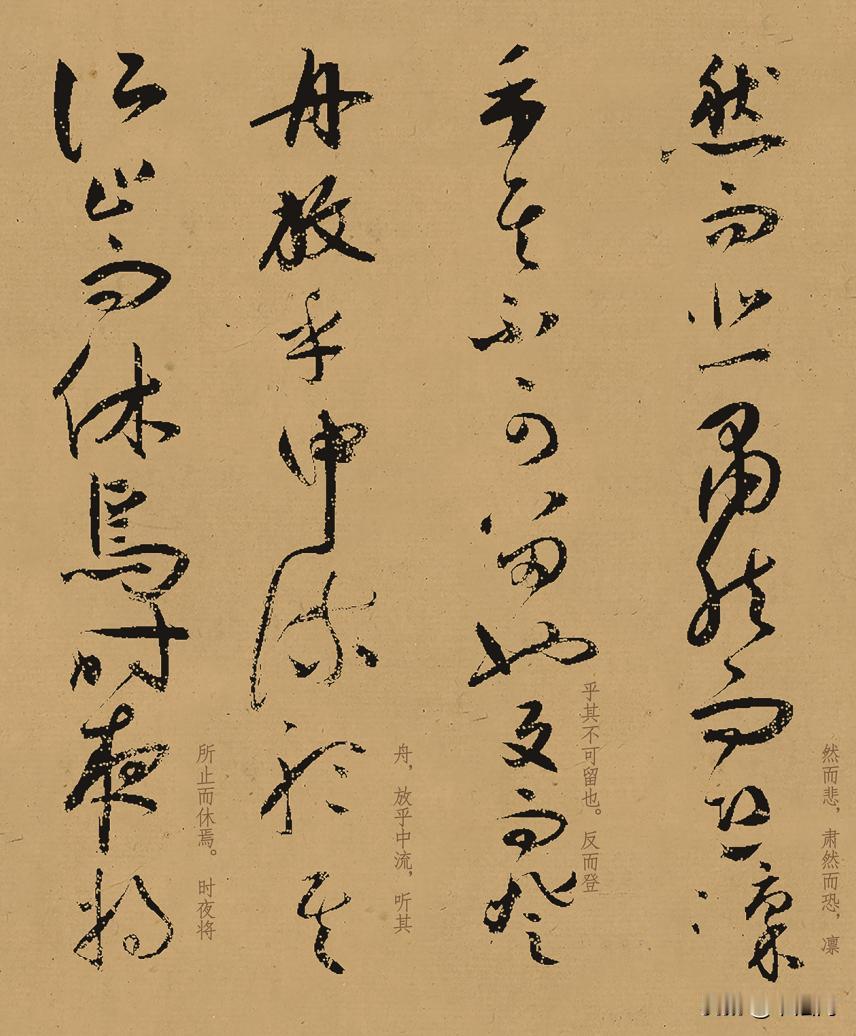 然而悲肃然而恐凛
然而悲，肃然而恐，凛
乎其不可留也反而登
乎其不可留也。反而登
舟放乎中流听其
舟，放乎中流，听其
所止而休焉时夜将
所止而休焉。时夜将